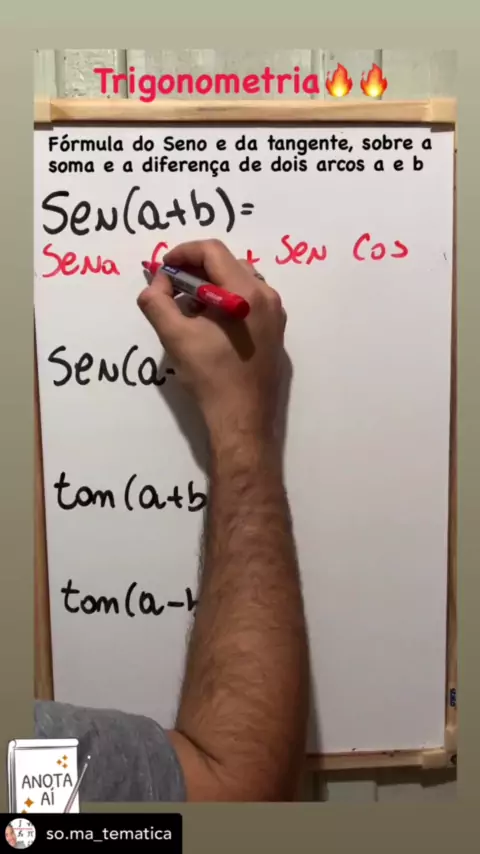 Trigonometria🔥🔥
Fórmula do Seno e da tangente, sobre a
soma e a diferença de dois arcos a e b
Sen(a+b)=
Sena + Sen Cos
Sen(a-
tan(a+b
tan(a-b
ANOTA
AÍ
so.ma_tematica